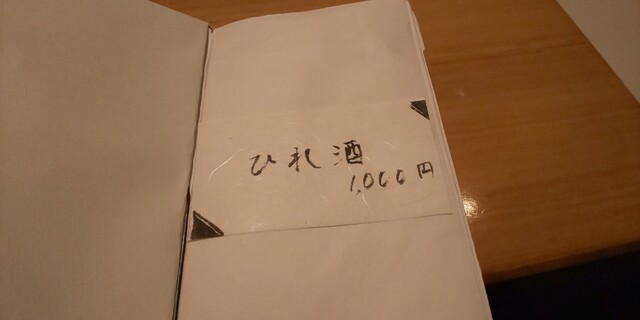 ひれ酒
1,000円